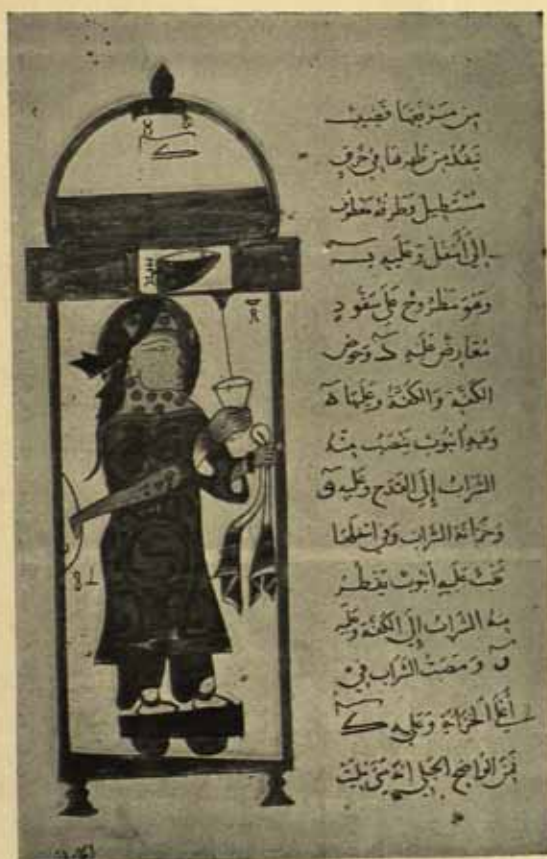 من مرفقها قضيب
ينفذ من ظهرها في خرق
مستطيل وطرفه معطوف
إلى أسفل وعليه
وهو مطروح على سفود
معارض عليه وحوض
الكفة والكفة وعليها ه
وفيه أنبوب ينصب منه
الشراب إلى القدح وعليه ق
وخزانة الشراب وفي اسفلها
ثقب عليه أنبوب يقطر
منه الشراب إلى الكفة وعليه
ن ومصب الشراب في
أعلى الخزانة وعليه ك
فمن الواضح الجلي انه متى